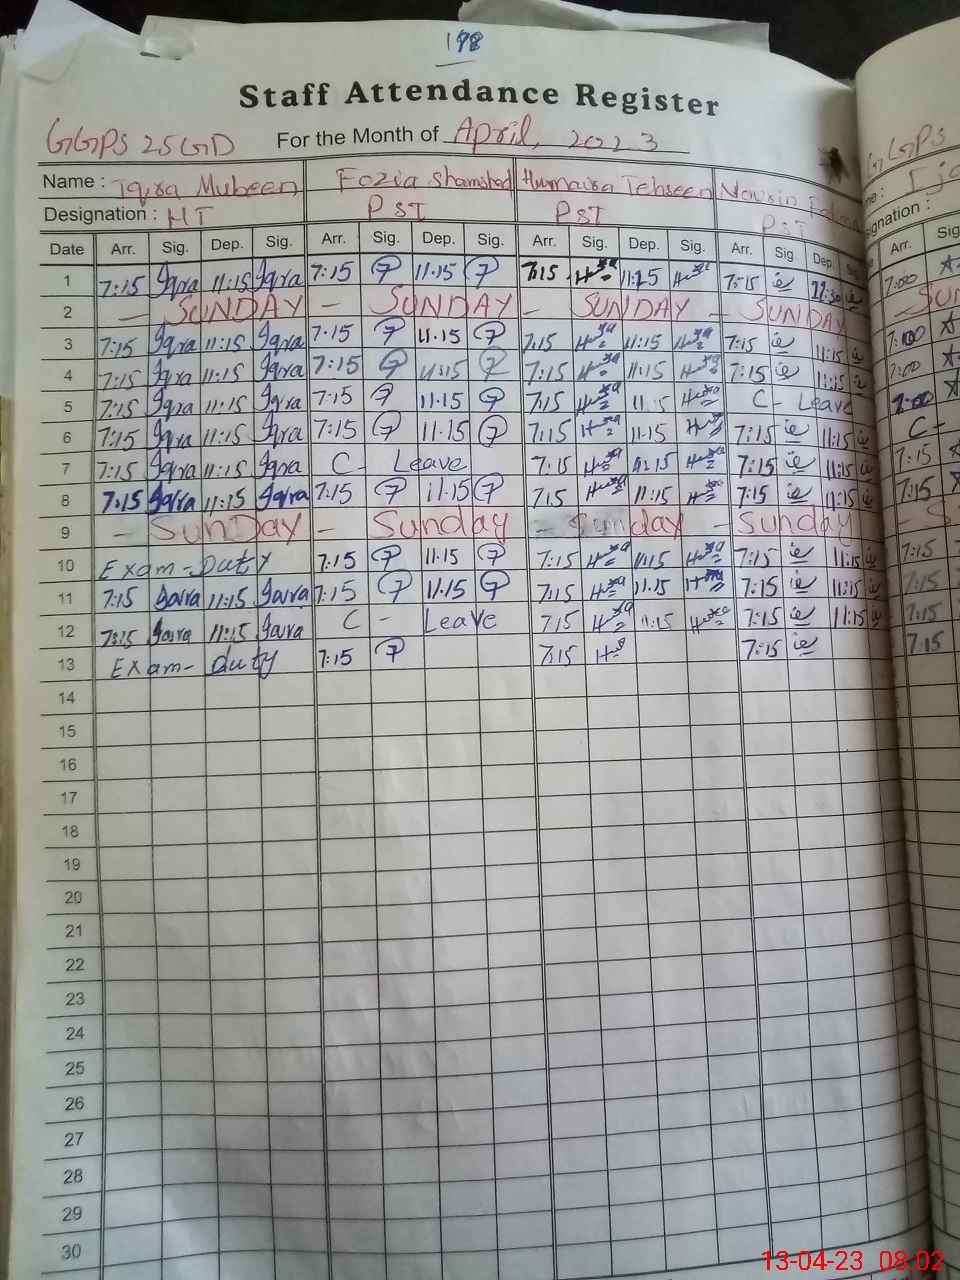 198
Staff Attendance Register
GGPS 25 GD For the Month of April, 2023
Name : Iqra Mubeen Fozia Shamshad Humaira Tehseen Nowrin
Designation : HT PST PST PST
Date Arr. Sig. Dep. Sig. Arr. Sig. Dep. Sig. Arr. Sig. Dep. Sig. Arr. Sig Dep. Arr.
1 7:15 Iqra 11:15 Iqra 7:15 11.15 7:15 11:15 7:15 7:00
2 - SUNDAY - SUNDAY - SUNDAY - SUNDAY
3 7:15 Iqra 11:15 Iqra 7:15 11.15 7:15 11:15 7:15 11:15 7:00
4 7:15 Iqra 11:15 Iqra 7:15 11:15 7:15 11:15 7:15 11:15 7:00
5 7:15 Iqra 11:15 Iqra 7:15 11.15 7:15 11:15 C- Leave 7:00
6 7:15 Iqra 11:15 Iqra 7:15 11.15 7:15 11.15 7:15 11:15 C-
7 7:15 Iqra 11:15 Iqra C- Leave 7:15 11:15 7:15 11:15 7:15
8 7:15 Iqra 11:15 Iqra 7:15 11.15 7:15 11:15 7:15 11:15 7:15
9 - SunDay - Sunday - Sunday - Sunday
10 Exam-Duty 7:15 11.15 7:15 11:15 7:15 11:15 7:15
11 7:15 Iqra 11:15 Iqra 7:15 11.15 7:15 11.15 7:15 11:15 7:15
12 7:15 Iqra 11:15 Iqra C- Leave 7:15 11:15 7:15 11:15 7:15
13 Exam-duty 7:15 7:15 7:15 7:15
14
15
16
17
18
19
20
21
22
23
24
25
26
27
28
29
30
13-04-23 08:02